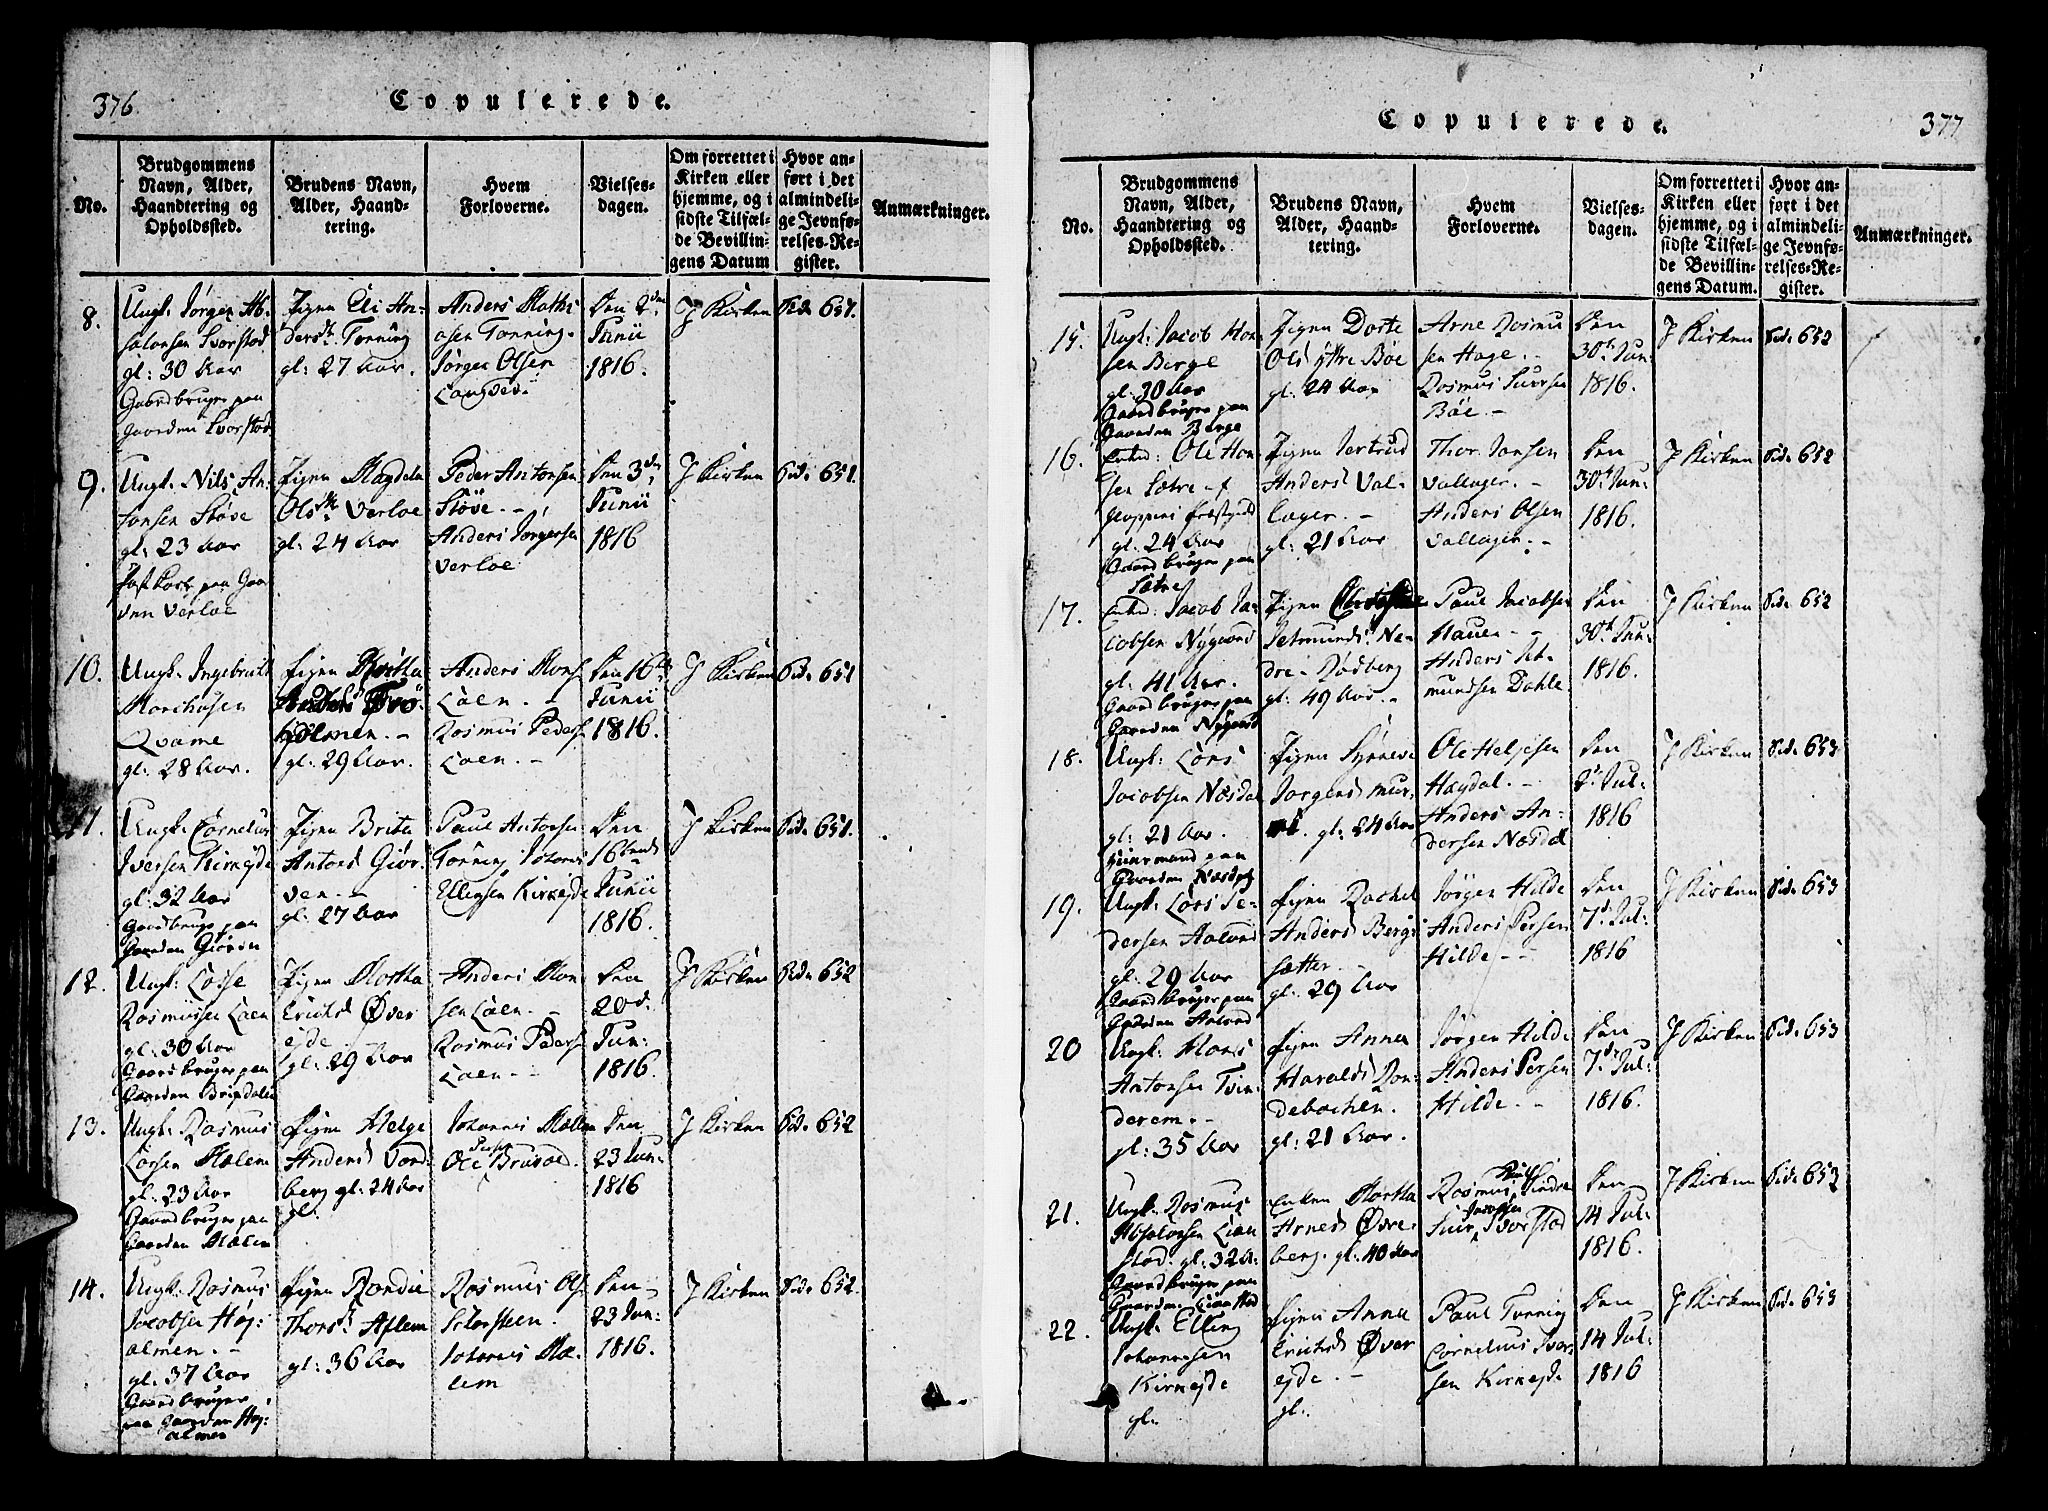 376.
Copulerede.
No.
Brudgommens
Navn, Alder,
Haandtering og
Opholdssted.
Brudens Navn,
Alder, Haand-
tering.
Hvem
Forloverne.
Vielses-
dagen.
Om forrettet i
Kirken eller
hjemme, og i
sidste Tilfæl-
de Bevillin-
gens Datum
Hvor an-
ført i det
almindeli-
ge Jevnfø-
relses-Re-
gister.
Anmærkninger.
8.
Ungk. Jørgen Ab-
salonsen Svorstad
gl: 30 Aar
Gaardbruger paa
Gaarden Svorstad
Pigen Eli An-
ders Tonning
gl: 27 Aar.
Anders Mathi
asen Tonning.
Jørgen Olsen
Den 2den
Junii
1816.
J Kirken
Pid. 651.
9.
Ungk. Nils An-
tonsen Støve
gl: 23 Aar
paa Gaar
den Verloe
Pigen Magdela
Ols Verloe
gl: 24 Aar
Peder Antonsen
Støve. -
Anders Jørgensen
Verloe
Den 3den
Junii
1816
J Kirken
Pid. 651.
10.
Ungk. Ingebrict
Monshusen
Qvame
gl: 28 Aar.
Pigen Martha
Anders
holmen. -
gl: 29 Aar.
Anders Mons
Loen. -
Rasmus Peders
Loen. -
Den 16de
Junii
1816.
J Kirken
Pid. 651
11.
Ungk. Cornelius
Iversen Kirkejde
gl: 32 Aar
Gaardbruger paa
Gaarden Giørven
Pigen Brita
Antons Giør-
ven. -
gl: 27 Aar
Paul Antonsen
Tonning Johannes
Ellingsen Kirkejde
Den
16tende
Junii
1816.
J Kirken
Pid. 651.
12.
Ungk: Lasse
Rasmusen Loen
gl: 30 Aar
Gaardbruger paa
Gaarden
Pigen Martha
Erichsd Øver
ejde
gl: 29 Aar
Anders Mon
sen Loen. -
Rasmus Peders
Loen. -
Den
20d.
Jun:
1816.
J Kirken
Pid. 652
13.
Ungk. Rasmus
Larsen Mælem
gl: 23 Aar
Gaardbruger paa
Gaarden Mælem
Pigen Helge
Andersd Vard
berg gl: 24 Aar
gl.
Johannes Mælem
Ole Bruland.
Den
23 Jun:
1816
J Kirken
Pid. 652
14.
Ungk. Rasmus
Jacobsen Høj:
almen. -
gl: 37 Aar
Gaardbruger
paa Gaarden Høj:
almen
Pigen Randie
Thors. Aflem
gl: 36 Aar
Rasmus Ols
Storsteen.
Johannes Mæ-
lem
Den
23 Jun:
1816.
J Kirken
Pid. 652.
377
Copulerede.
No.
Brudgommens
Navn, Alder,
Haandtering og
Opholdssted.
Brudens Navn,
Alder, Haand-
tering.
Hvem
Forloverne.
Vielses-
dagen.
Om forrettet i
Kirken eller
hjemme, og i
sidste Tilfæl-
de Bevillin-
gens Datum.
Hvor an-
ført i det
almindeli-
ge Jevnfø-
relses-Re-
gister.
Anmærkninger.
15.
Ungk: Jacob Han
sen Berge
gl: 30 Aar
Gaardbruger paa
Gaarden Berge
Pigen Dorte
Ols ytre Bøe
gl: 24 Aar
Arne Rasmu
sen Hage. -
Rasmus Siversen
Bøe -
Den
30te Jun:
1816.
J Kirken
Pid. 652
16.
Enkd: Ole Han
sen Sætre - f
gl: 24 Aar
Gaardbruger paa
Sætre
Pigen Jertrud
Anders Val-
lager. -
gl: 21 Aar
Thor Jonsen
Vallager. -
Anders Olsen
Vallager. -
Den
30te Jun:
1816.
J Kirken
Pid. 652
17.
Enkd: Jacob Ja-
cobsen Nygaard
gl: 41 Aar.
Gaardbruger paa
Gaarden Nygaard
Pigen
Jetmunds Ne-
dre - Rødberg
gl: 49 Aar. -
Paul Jacobsen
Hauen - -
Anders Jet-
mundsen Dahle
Den
30te Jun:
1816.
J Kirken
Pid. 652
18.
Ungk: Lars
Jacobsen Næsdal
gl: 21 Aar.
Huusmand paa
Gaarden Næsdal
Pigen Synneve
Jørgens Mur:
gl: 24 Aar
Ole Helgesen
Hagdal. -
Anders An-
dersen Næsdal
Den
2. Jul:
1816
J Kirken
Pid. 653
19.
Ungk: Lars Pe-
dersen Aaland
gl: 29 Aar
Gaardbruger paa
Gaarden Aaland
Pigen Rachel
Anders Bergs
sætter. -
gl: 29 Aar
Jørgen Hilde
Anders Persen
Hilde - -
Den
7d: Jul:
1816
J Kirken
Pid. 653
20
Ungk: Mons
Antonsen Tvin-
derem. -
gl: 35 Aar
Pigen Anna
Haralds Ron-
debachen.
gl: 21 Aar.
Jørgen Hilde
Anders Persen
Hilde. -
Den
7de Jul:
1816.
J Kirken
Pid. 653
21.
Ungk. Rasmus
Absalonsen Lian
stad. gl: 32 A:
Gaardbruger paa
Gaarden Lianstad
Enken Martha
Arnes Øvre-
berg. gl: 40 Aar
Rasmus Hindre
Siur Svorstad
Den
14 Jul:
1816.
J Kirken
Pid. 653
22.
Ungk: Elling
Johannesen
Kirkejde
gl.
Pigen Anna
Erichsd Øver
ejde. -
gl.
Paul Tonning
Cornelius Iver
sen Kirkejde
Den
14 Jul:
1816
J Kirken
Pid. 653